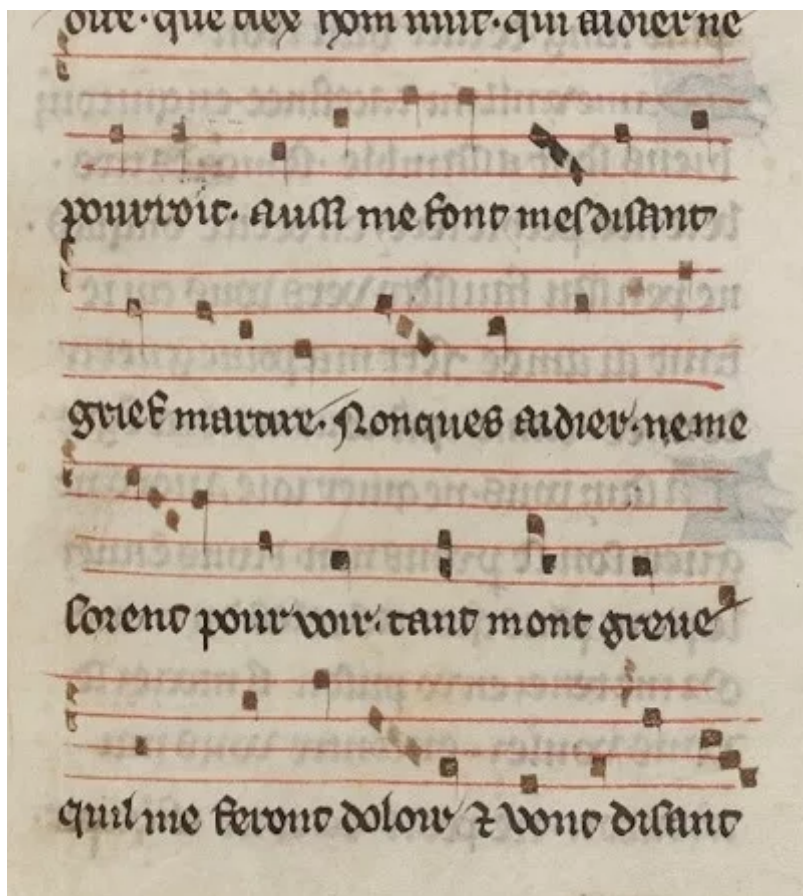 que diex hom muit · qui aidier ne
pourroit · aussi me font mesdisant
grief martire · Nonques aidier · ne me
sorent pour voir · tant mont greue
quil me feront doloir ⁊ vont disant